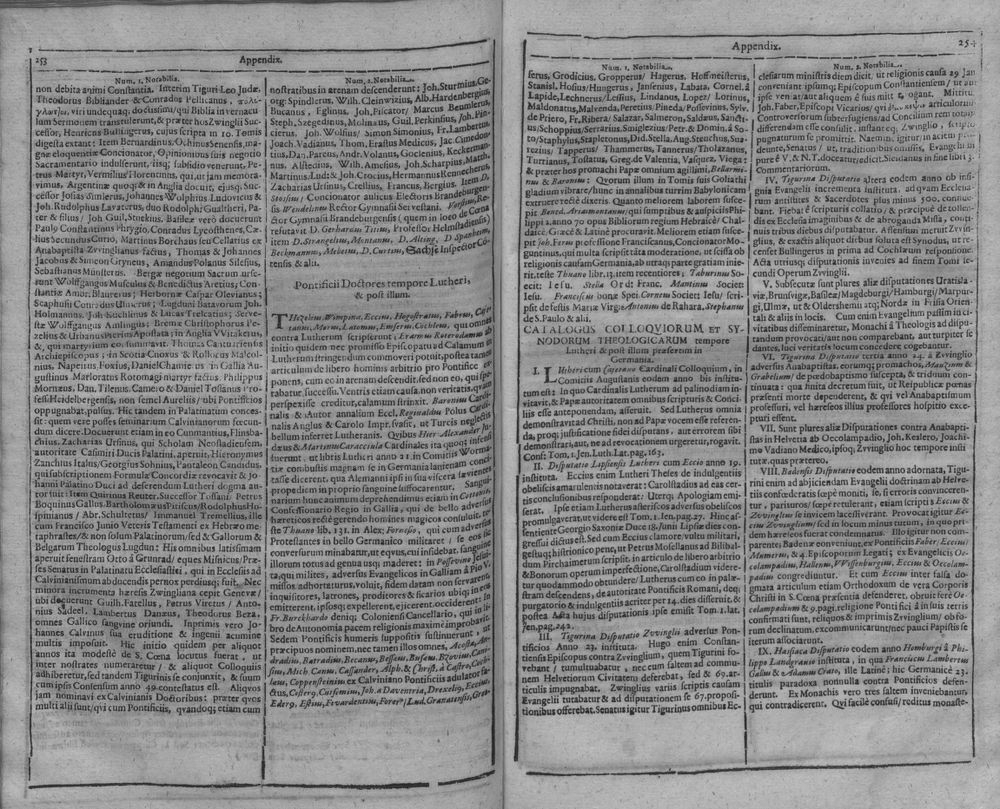 253
Appendix.
Num. 1. Notabilia.
non debita animi Constantia. Interim Tiguri Leo Judæ,
Theodorus Bibliander & Conradus Pellicanus,
viri undequaq; doctissimi qui Biblia in vernacu-
lam Sermonem transtulerunt, & præter hos Zwinglii Suc-
cessor, Henricus Bullingerus, cujus scripta in 10. Tomis
digesta extant: Item Bernardinus Ochinus Senensis, ma-
gnæ eloquentiæ Concionator, Opinionibus suis negotio
Sacramentario indusserunt, iisq; subsidio venerunt, Pe-
trus Martyr, Vermilius Florentinus, qui, ut jam memora-
vimus, Argentinæ quoq; & in Anglia docuit, ejusq; Suc-
cessor Josias Simlerus, Johannes Wolphius Ludovicus &
Joh. Rudolphus Lavaterus, duo Rodolphi Gualtheri, Pa-
ter & filius / Joh. Guil. Stuckius. Basileæ vero docuerunt
Paul9 Constantinus Phrygio, Conradus Lycosthenes, Cæ-
lius Secundus Curio, Martinus Borrhaus seu Cellarius ex
Anabaptista Zwinglianus factus, Thomas & Johannes
Jacobus & Simon Grynæus, Amandus Polanus Silesius,
Sebastianus Münsterus. Bergæ negotium Sacrum urse-
runt Wolfgangus Musculus & Benedictus Aretius; Con-
stantiæ Ambr. Blaurerus; Herbornæ Caspar Olevianus;
Johannes Piscator & Lucas Trelcatius; Serve-
stæ Wolfgangus Amlingus; Bremæ Christophorus Pe-
zelius & Urbanus Pierius Apostata; in Anglia Vvitaker9,
&, qui martyrium consummavit. Thomas Cantuariensis
Archiepiscopus; in Scotia Cnoxus & Rollocus Malcol-
nius, Napeirus, Foxius, Daniel Chamierus in Gallia Au-
gustinus Marloratus Rotomagi martyr factus. Philippus
Mornæus, Dan. Tilenus. Camero & Daniel Tossanus Pro-
fessi Heidelbergensis, non semel Aureliis / ubi Pontificios
oppugnabat, passus. Hic tandem in Palatinatum conces-
sit: quem vere posses seminarium Calvinianorum fecun-
dum dicere. Docuerunt etiam in eo Cunmannius, Flinsba-
chius, Zacharias Ursinus, qui Scholam Neostadiensem,
autoritate Casimiri Ducis Palatini, aperuit. Hieronymus
Zanchius Italus, Georgius Sohnius, Pantaleon Candidus,
qui subscriptionem Formulæ Concordiæ revocavit & Jo-
hanni Palatino Duci ad deserendum Lutheri dogma au-
tor fuit: Item Quirinus Reuter. Successor Tossani Petrus
Boquinus Gallus. Bartholomæus Pitiscus / Rodolphus Ho-
spinianus / Abr. Schultetus / Immanuel Tremellius, ille
cum Francisco Junio Veteris Testamenti ex Hebræo me-
taphrastes / & non solum Palatinorum / sed & Gallorum &
Belgarum Theologus Lugdun: His omnibus latissimam
aperuit fenestram Orto à Grunrad / eques Misnicus / Præ-
ses Senatus in Palatinatu Ecclesiastici, qui in Ecclesiis ad
Calvinianismum abducendis pernox perdiusq; fuit. Nec
minora incrementa hæresis Zwingliana cepit Genevæ /
ubi docuerunt Guilh. Farellus, Petrus Viretus / Anto-
nius Sadeel. Lambertus Danæus, Theodorus Beza,
omnes Gallico sangvine oriundi. Inprimis vero Jo-
hannes Calvinus sua eruditione & ingenii acumine
multis imposuit. Hic initio quidem per aliquot
annos ita modestè de S. Cœna locutus fuerat, ut
inter nostrates numeraretur / & aliquot Colloquiis
adhiberetur, sed tandem Tigurinis se conjunxit, & suum
cum ipsis Consensum anno 49. contestatus est. Aliquos
jam nominavi ex Calvinianis Doctoribus; præter quos
multi alii sunt / qui cum Pontificiis, quandoq; etiam cum
Num. 2. Notabilia.
nostratibus in arenam descenderunt: Joh. Sturmius, Ge-
org: Spinlerus, Wilh. Cleinwitzius, Alb. Hardenbergius,
Bucanus, Eglinus, Joh. Piscator, Marcus Beumlerus,
Steph. Szegedinus, Molinæus, Guil. Perkinsius, Joh. Pin-
cierus, Joh. Wolfius / Simon Simonius, Fr. Lambertus,
Joach. Vadianus, Thom. Erastus Medicus, Jac. Cimeda-
tius, Dan. Pareus, Andr. Volanus, Goclenius, Keckerman-
nus, Alstedius, Wilh. Amesius, Joh. Scharpius, Matth.
Martinius, Lud: & Joh. Crocius, Hermannus Rennecherus
Zacharias Ursinus, Crellius, Francus, Bergius. Item D.
Stosius / Concionator aulicus Electoris Brandeburgen-
sis Wendelinus Rector Gymnasii Servestani. Vossius, Re-
ctor Gymnasii Brandeburgensis (quem in loco de Cœna
refutavit D. Gerhardus Titius, Professor Helmstadiensis)
item D. Strangelius, Montanus, D. Alting, D. Spanheim,
Berckmannus, Mebetus, D. Curtius, Sachse Inspector Cö-
tensis & alii.
Pontificii Doctores tempore Lutheri,
& post illum.
THezelius, Wimpina, Eccius, Hogostratus, Fabritius, Caje-
tanus, Marin, Latomus, Emserus, Cochlæus, qui omnes
contra Lutherum scripserunt / Erasmus Roterodamus
initio quidem nec promissio Episcopatu ad Calamum in
Lutherum stringendum commoveri potuit, postea tamen
articulum de libero hominis arbitrio pro Pontifice ex-
ponens, cum eo in arenam descendit, sed non eo, qui spe-
rabatur, successu. Ventris etiam causa non veritatis, quam
perspexisse creditur, calamum strinxit. Baronius Cardi-
nalis & Autor annalium Eccl. Reginaldus Polus Cardi-
nalis Anglus & Carolo Impr. svasit, ut Turcis neglectis
bellum inferret Lutheranis. Quibus Hier. Alexander Ju-
dæus & Marianus Caracciola Cardinales ita quoq; infensi
fuerunt ut libris Lutheri anno 21. in Comitiis Worma-
tiæ combustis magnam se in Germania lantenam conje-
cisse dicerent, qua Alemanni ipsi in sua viscera sævituri,
propediem in proprio sangvine suffocarentur. Sangui-
narium hunc animum deprehendimus etiam in Cottonio,
Confessionario Regis in Gallia, qui de bello adversus
hæreticos rectè gerendo homines magicos consuluit, te-
ste Thuano lib. 131. in Alex: Forosio, qui cum adversus
Protestantes in bello Germanico militaret / se eos in
conversurum minabatur, ut eqvus, cui insidebat, sangui-
illorum totus ad genua usq; maderet: in Possevino Jesui-
ta, qui milites, adversus Evangelicos in Galliam à Pio V.
missos adhortaturus, voluit, fidem datam non servarent,
inquisitores, latrones, proditores & sicarios ubiq; in eos
emitterent, ipsosq; expellerent, ejicerent, occiderent: in
Fr. Burckhardo deniq; Coloniensi Cancellario, qui in li-
bro de Autonomia pacem religionis maximè improbavit.
Sedem Pontificis humeris suppositis sustinuerunt, ut
præcipuos nominem, nec tamen illos omnes, Alcastar, An-
dradius, Batradius, Becanus, Bessæus, Busæus, Bzovius, Cani-
sius, Mich. Canus, Cassander, Alph. & (Christ. à Castro, Coch-
læus, Coppensteinius ex Calviniano Pontificiis adulator fa-
ctus, Coster9, Cutsemius, Joh. à Daventria, Drexeli9, Eccius,
Eder9, Estius, Fevardentius, Forer9 / Lud. Granatensis, Gre-

Appendix.
254
Num. 1. Notabilia.
serus, Grodicius, Gropperus / Hagerus, Hoffmeisterus,
Stanisl. Hosius / Hungerus, Jansenius, Labata, Cornel. à
Lapide, Lechnerus / Lessius, Lindanus, Lopez / Lorinus,
Maldonatus, Malvenda, Pererius, Pineda / Possevinus, Sylv.
de Prierio, Fr. Ribera / Salazar, Salmeron, Saldæus, Sancti-
us / Schoppius / Serrarius, Smigletzius / Petr. & Domin. à So-
to / Staphylus, Stapletonus, Did. Stella, Aug. Steuchus, Sua-
retzius, Tapperus / Thummerus, Tannerus / Tholozanus,
Turrianus, Tostatus, Greg. de Valentia, Vasquez, Viega:
& præter hos promachi Papæ omnium agillimi, Bellarmi-
nus & Baronius: Quorum illum in Tomis suis Goliathi
gladium vibrare / hunc in annalibus turrim Babylonicam
extruere rectè dixeris. Quanto meliorem laborem susce-
pit Bened. Arrammontanus, qui sumptibus & auspiciis Phi-
lippi 2. anno 70 opus Bibliorum regium Hebraicè / Chal-
daicè, Græcè & Latinè procuravit. Meliorem etiam susce-
pit Joh. Ferus professione Franciscanus, Concionator Mo-
guntinus, qui multa scripsit tãta moderatione, ut scissã ob
religionis causam Germaniã, ab utraq; parte gratiam inie-
rit. teste Thuano libr. 13. item recentiores; Taburnus So-
ecit: Jesu, Stella Ord: Franc. Mantinus Societ:
Iesu. Franciscus bonæ Spei Cornæus Societ: Iesu / scri-
psit de festis Mariæ Virg: Antonius de Rahara, Stephanus
de S. Paulo & alii.
CATALOGUS COLLOQVIORUM ET SY-
NODORUM THEOLOGICARUM tempore
Lutheri & post illum præsertim in
Germania.
I. LUthericum Cajetano Cardinali Colloquium, in
Comitiis Augustanis eodem anno bis institu-
tum est: In quo Cardinalis Lutherum ad palinodiam in-
vitavit, & Papæ autoritatem omnibus scripturis & Conci-
liis esse anteponendam, asseruit. Sed Lutherus omnia
demonstravit ad Christi, non ad Papæ vocem esse referen-
da, proq; justificatione fidei disputans, aut errorem sibi
demonstrari aut, ne ad revocationem urgeretur, rogavit.
Conf: Tom. 1. Jen. Luth. Lat. pag. 163.
II. Disputatio Lipsiensis Lutheri cum Eccio anno 19.
instituta. Eccius enim Lutheri Theses de Indulgentiis
obeliscis amarulentis notaverat: Carolstadius ad eas cer-
tis conclusionibus responderat: Uterq; Apologiam emi-
serat. Ipse etiam Lutherus asteriscos adversus obeliscos
promulgaverat, ut videre est Tom. 1. Jen. pag. 27. Hinc as-
sentiente Georgio Saxoniæ Duce 18. Junii Lipsiæ dies con-
gressui dictus est. Sed cum Eccius clamore / vultu militari,
gestusq; histrionico penè, ut Petrus Mosellanus ad Bilibal-
dum Pircheimerum scripsit, in articulo de libero arbitrio
& Bonorum operum imperfectione, Carolstadium videre-
tur quodammodo obtundere / Lutherus cum eo in palæ-
stram descendens, de autoritate Pontificis Romani, deq;
purgatorio & indulgentiis acriter per 14. dies disseruit, &
postea Acta hujus disputationis ipse emisit Tom 1. lat.
Jen. pag. 242.
III. Tigurina Disputatio Zvvinglii adversus Pon-
tificios Anno 23. instituta. Hugo enim Constan-
tiensis Episcopus contra Zvvinglium, quem Tigurini so-
vebant / tumultuabatur, nec cum saltem ad commu-
nem Helvetiorum Civitatem deferebat, sed & 69. ar-
ticulis impugnabat. Zwinglius variis scriptis causam
Evangelii tutabatur & ad disputationem se 67. proposi-
tionibus offerebat. Senatus igitur Tigurinus omnibus Ec-
Num. 2. Notabilia.
clesiarum ministris diem dicit, ut religionis causa 29 Jan
conveniant ipsumq; Episcopum Constantiensem / ut aut
ipse veniat / aut aliquem è suis mittat, rogant. Mittitur
Joh. Faber, Episcopi Vicarius / qui articulorum
Controversorum subterfugiens / ad Concilium rem totam
differendam esse consuluit, instant eq; Zwinglio, scripto
pugnaturum se promisit. Nacmq; igitur in acie tu præ-
cipiente, Senatus / ut, traditionibus omissis, Evangelii in
purè è V. & N. T. doceatur / edicit. Sleidanus in fine libri 3.
Commentariorum.
IV. Tigurina Disputatio altera eodem anno ob insi-
gnia Evangelii incrementa instituta, ad quam Ecclesia-
rum antistites & Sacerdotes plus minus 500, confluxe-
bant. Fiebat è scripturis collatio, & præcipuè de tollen-
dis ex Ecclesia imaginibus & de abroganda Missa, conti-
nuis tribus diebus disputabatur. Assensum meruit Zvvin-
glius, & exactis aliquot diebus soluta est Synodus, ut re-
censet Bullingerus in prima ad Cochlæum responsione.
Acta utriusq; disputationis invenies ad finem Tomi se-
cundi Operum Zvvinglii.
V. Subsecutæ sunt plures aliæ disputationes Gratisla-
viæ, Brunsvigæ, Basileæ / Magdeburgi / Hamburgi / Marpur-
gi, Ulmæ, ut & Oldershemi atq; Nordæ in Frisia Orien-
tali & aliis in locis. Cum enim Evangelium passim in ci-
vitatibus disseminaretur, Monachi à Theologis ad dispu-
tandum provocati / aut non comparebant, aut turpiter se
dantes, luci veritatis locum concedere cogebantur.
VI. Tigurina Disputatio tertia anno 24. à Zvvinglio
adversus Anabaptistas, eorumq; promachos, Manzium &
Grabelium / de pædobaptismo suscepta, & triduum con-
tinuata: quã Junita decretum fuit, ut Reipublicæ pœnas
præsenti morte dependerent, & qui vel Anabaptismum
professuri, vel hæreseos illius professores hospitio exce-
puri essent.
VII. Sunt plures aliæ Disputationes contra Anabapti-
stas in Helvetia ab Oecolampadio, Joh. Keslero, Joachi-
mo Vadiano Medico, ipsoq; Zvvinglio hoc tempore insti-
tutæ, quas prætereo.
VIII. Badensis Disputatio eodem anno adornata, Tigu-
rini enim ad abjiciendam Evangelii doctrinam ab Helve-
tiis confœdratis sæpe moniti, se, si erroris convinceren-
tur, parituros / sæpe retulerunt, etiam scripti s Eccius &
Zvvinglius se invicem lacessiverant. Provocat igitur Ec-
cius Zvvinglium / sed in locum minus tutum, in quo pri-
dem hæreseos fuerat condemnatus. Illo igitur non com-
parente, Badenæ conveniunt, ex Pontificiis Faber, Eccius,
Murnerus, & 4. Episcoporum Legati; ex Evangelicis Oe-
colampadius, Hallerus, VVissenburgius, Eccius & Oecolam-
padius congrediuntur. Et cum Eccius inter falsa do-
gmata articulum etiam Orthodoxum de vera Corporis
Christi in S. Cœna præsentia defenderet, obruit ferè Oe-
colampadium & 9. pagi religione Pontificiâ in suis terris
confirmati sunt, reliquos & imprimis Zvvinglium / ob fo-
rum declinatum, excommunicarunt / nec pauci Papistis se
iterum asociarunt.
IX. Hassiaca Disputatio eodem anno Hombergi à Phi-
lippo Landgravio instituta, in qua Franciscus Lambertus
Gallus & Adamus Crato, ille Latinè; hic Germanicè 23.
titulis paradoxa nonnulla contra Pontificios defen-
derunt. Ex Monachis vero tres saltem inveniebantur,
qui contradicerent. Qui facilè confusi / reditus monaste-